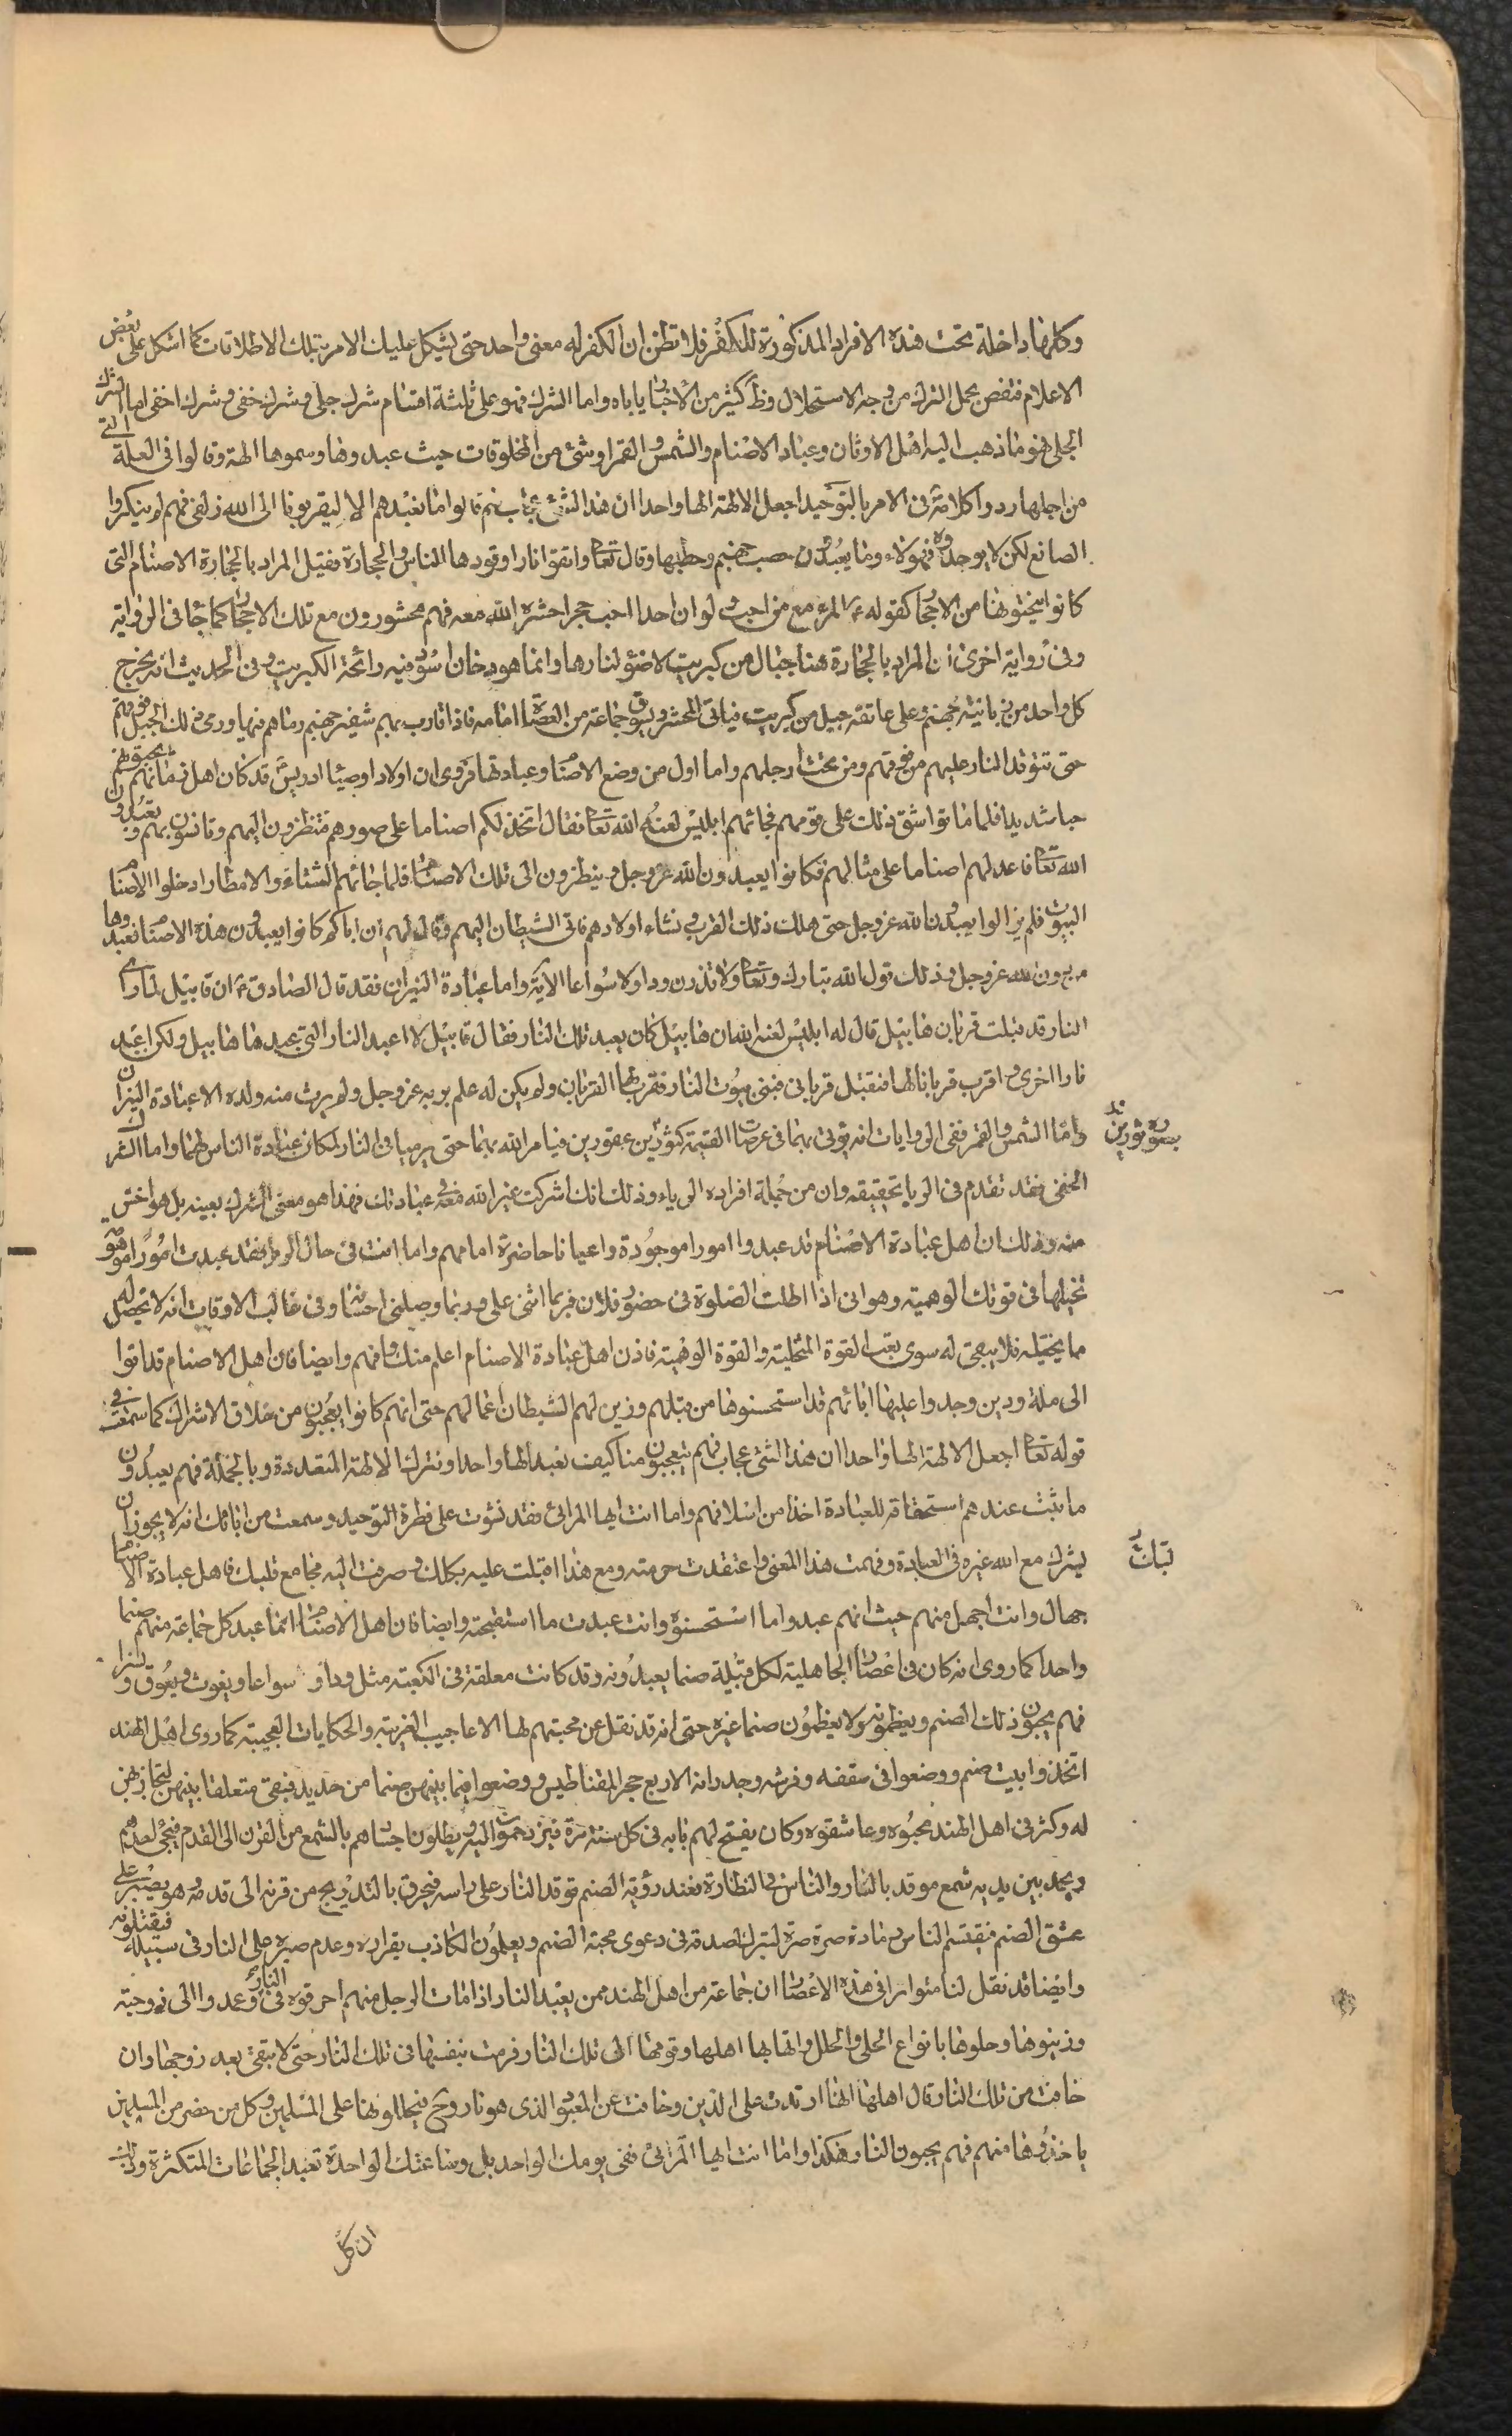 وكلها داخلة تحت هذه الافراد المذكورة للكفر فلا تظن ان الكفر له معنى واحد حتى يشكل عليك الامر بتلك الاطلاقات كما اشكل على بعض
الاعلام فتفصى بحمل الترك من وجه الاستحلال وظ كثير من الاخبار ياباه واما الشرك فهو على ثلثة اقسام شرك جلى وشرك خفى وشرك اخفى اما الشرك
الجلى فهو ما ذهب اليه اهل الاوثان وعباد الاصنام والشمس والقمر او شئ من المخلوقات حيث عبدوها وسموها الهة وقالوا فى العلة التى
من اجلها ردوا كلامه فى الامر بالتوحيد اجعل الالهة الها واحدا ان هذا لشئ عجاب نعم قالوا ما نعبدهم الا ليقربونا الى الله زلفى فهم لم ينكروا
الصانع لكن لا يوحدوه فهؤلاء وما يعبدون حصب جهنم وحطبها وقال تعا واتقوا نارا وقودها الناس والحجارة فقيل المراد بالحجارة الاصنام التى
كانوا ينحتونها من الاحجار كقوله ع المرء مع من احب ولو ان احدا احب حجرا حشره الله معه فهم محشورون مع تلك الاحجار كما جاء فى الرواية
وفى رواية اخرى ان المراد بالحجارة هنا جبال من كبريت لا ضوء لنارها وانما هو دخان اسود فيه رائحة الكبريت وفى الحديث انه يخرج
كل واحد من زبانية جهنم وعلى عاتقه جبل من كبريت فياتى المحشر ويسوق جماعة من العصاة امامه فاذا قارب بهم شفير جهنم رماهم فيها ورمى ذلك الجبل فوقهم
حتى تتوقد النار عليهم من فوقهم ومن تحت ارجلهم واما اول من وضع الاصنام وعبادتها فروى ان اولاد اوصياء ادريس قد كان اهل زمانهم يحبونهم
حبا شديدا فلما ماتوا اشق ذلك على قومهم فجائهم ابليس لعنه الله تعا فقال اتخذ لكم اصناما على صورهم فتنظرون اليهم وتانسون بهم وتعبدون
الله تعا فاعد لهم اصناما على مثالهم فكانوا يعبدون الله عز وجل وينظرون الى تلك الاصنام فلما جائهم الشتاء والامطار ادخلوا الاصنام
البيوت فلم يزالوا يعبدون الله عز وجل حتى هلك ذلك القرن ونشاء اولادهم فاتى الشيطان اليهم وقال لهم ان اباكم كانوا يعبدون هذه الاصنام فعبدوها
من دون الله عز وجل وذلك قول الله تبارك وتعا ولا تذرن ودا ولا سواعا الاية واما عبادة النيران فقد قال الصادق ع ان قابيل لما راى
النار قد قبلت قربان هابيل قال له ابليس لعنه الله ان هابيل كان يعبد تلك النار فقال قابيل لا اعبد النار التى عبدها هابيل ولكن اعبد
نارا اخرى واقرب قربانا لها فتقبل قربانى فبنى بيوت النار فقرب لها القربان ولم يكن له علم بربه عز وجل ولم يرث منه ولده الا عبادة النيران
واما الشمس والقمر ففى الروايات انه يؤتى بهما فى عرصات القيمة كثورين عقورين فيامر الله بهما حتى يرميا فى النار لمكان عبادة الناس لهما واما الشرك
الخفى فقد تقدم فى الريا تحقيقه وان من جملة افراده الرياء وذلك انك اشركت غير الله معه فى عبادتك فهذا هو معنى الشرك بعينه بل هو اخس
منه وذلك ان اهل عبادة الاصنام قد عبدوا امورا موجودة واعيانا حاضرة امامهم واما انت فى حال الريا فقد عبدت امورا موهومة
تخيلها فى قوتك الوهمية وهو انى اذا اطلت الصلوة فى حضور فلان فربما اثنى على وربما وصلنى احسانه وفى غالب الاوقات انه لا يحصل له
مما يخيله فلا يبقى له سوى تعب القوة المتخيلة والقوة الوهمية فاذن اهل عبادة الاصنام اعلم منك وافهم وايضا فان اهل الاصنام قد اتوا
الى ملة ودين وجدوا عليها ابائهم قد استحسنوها من قبلهم وزين لهم الشيطان اعمالهم حتى انهم كانوا يعجبون من خلاف الاشراك كما سمعت فى
قوله تعا اجعل الالهة الها واحدا ان هذا لشئ عجاب فهم يتعجبون منا كيف نعبد الها واحدا ونترك الالهة المتعددة وبالجملة فهم يعبدون
ما ثبت عندهم استحقاقه للعبادة اخذا من اسلافهم واما انت ايها المرائى فقد نشوت على فطرة التوحيد وسمعت من ابائك انه لا يجوز ان
يشرك مع الله غيره فى العبادة وفهمت هذا المعنى واعتقدت حرمته ومع هذا اقبلت عليه بكلك وصرفت اليه مجامع قلبك فاهل عبادة الاصنام
جهال وانت اجهل منهم حيث انهم عبدوا ما استحسنوه وانت عبدت ما استقبحته وايضا فان اهل الاصنام انما عبد كل جماعة منهم صنما
واحدا كما روى انه كان فى اعصار الجاهلية لكل قبيلة صنما يعبدونه وقد كانت معلقة فى الكعبة مثل ودا و سواعا ويغوث ويعوق ونسرا
فهم يحبون ذلك الصنم ويعظمونه ولا يعظمون صنما غيره حتى انه قد نقل عن محبتهم لها الاعاجيب الغريبة والحكايات العجيبة كما روى اهل الهند
اتخذوا بيت صنم ووضعوا فى سقفه وفرشه وجدرانه الاربع حجر المقناطيس ووضعوا فيما بينهن صنما من حديد فبقى متعلقا بينهن لتجاذبهن
له وكثر فى اهل الهند محبوه وعاشقوه وكان يفتح لهم بابه فى كل سنة مرة فيزدحمون اليه ويطلون اجسادهم بالشمع من القرن الى القدم فيجئ احدهم
وبين يديه شمع موقد بالنار والناس فى النظارة فعند رؤية الصنم توقد النار على راسه فيحرق بالتدريج من قرنه الى قدمه وهو يصبر على
عشق الصنم فيقتسم الناس رماده صرة صرة لتبرك لصدقه فى دعوى محبة الصنم ويعلمون الكاذب بفراره وعدم صبره على النار فى سبيله فيقتلونه
وايضا قد نقل لنا متواترا فى هذه الاعصار ان جماعة من اهل الهند ممن يعبد النار اذا مات الرجل منهم احرقوه فى النار وعمدوا الى زوجته
وزينوها وحلوها بانواع الحلى والحلل واتى بها اهلها وقومها الى تلك النار فرمت بنفسها فى تلك النار حتى لا تبقى بعد زوجها وان
خافت من تلك النار قال اهلها انها ارتدت على الدين وخافت عن المعبود الذى هو نار وح فيحاولونها على المسلمين وكل من حضر من المسلمين
ياخذوها منهم فهم يحبون النار هكذا واما انت ايها المرائى ففى يومك الواحد بل وساعتك الواحدة تعبد الجماعات المتكثرة
ان كل